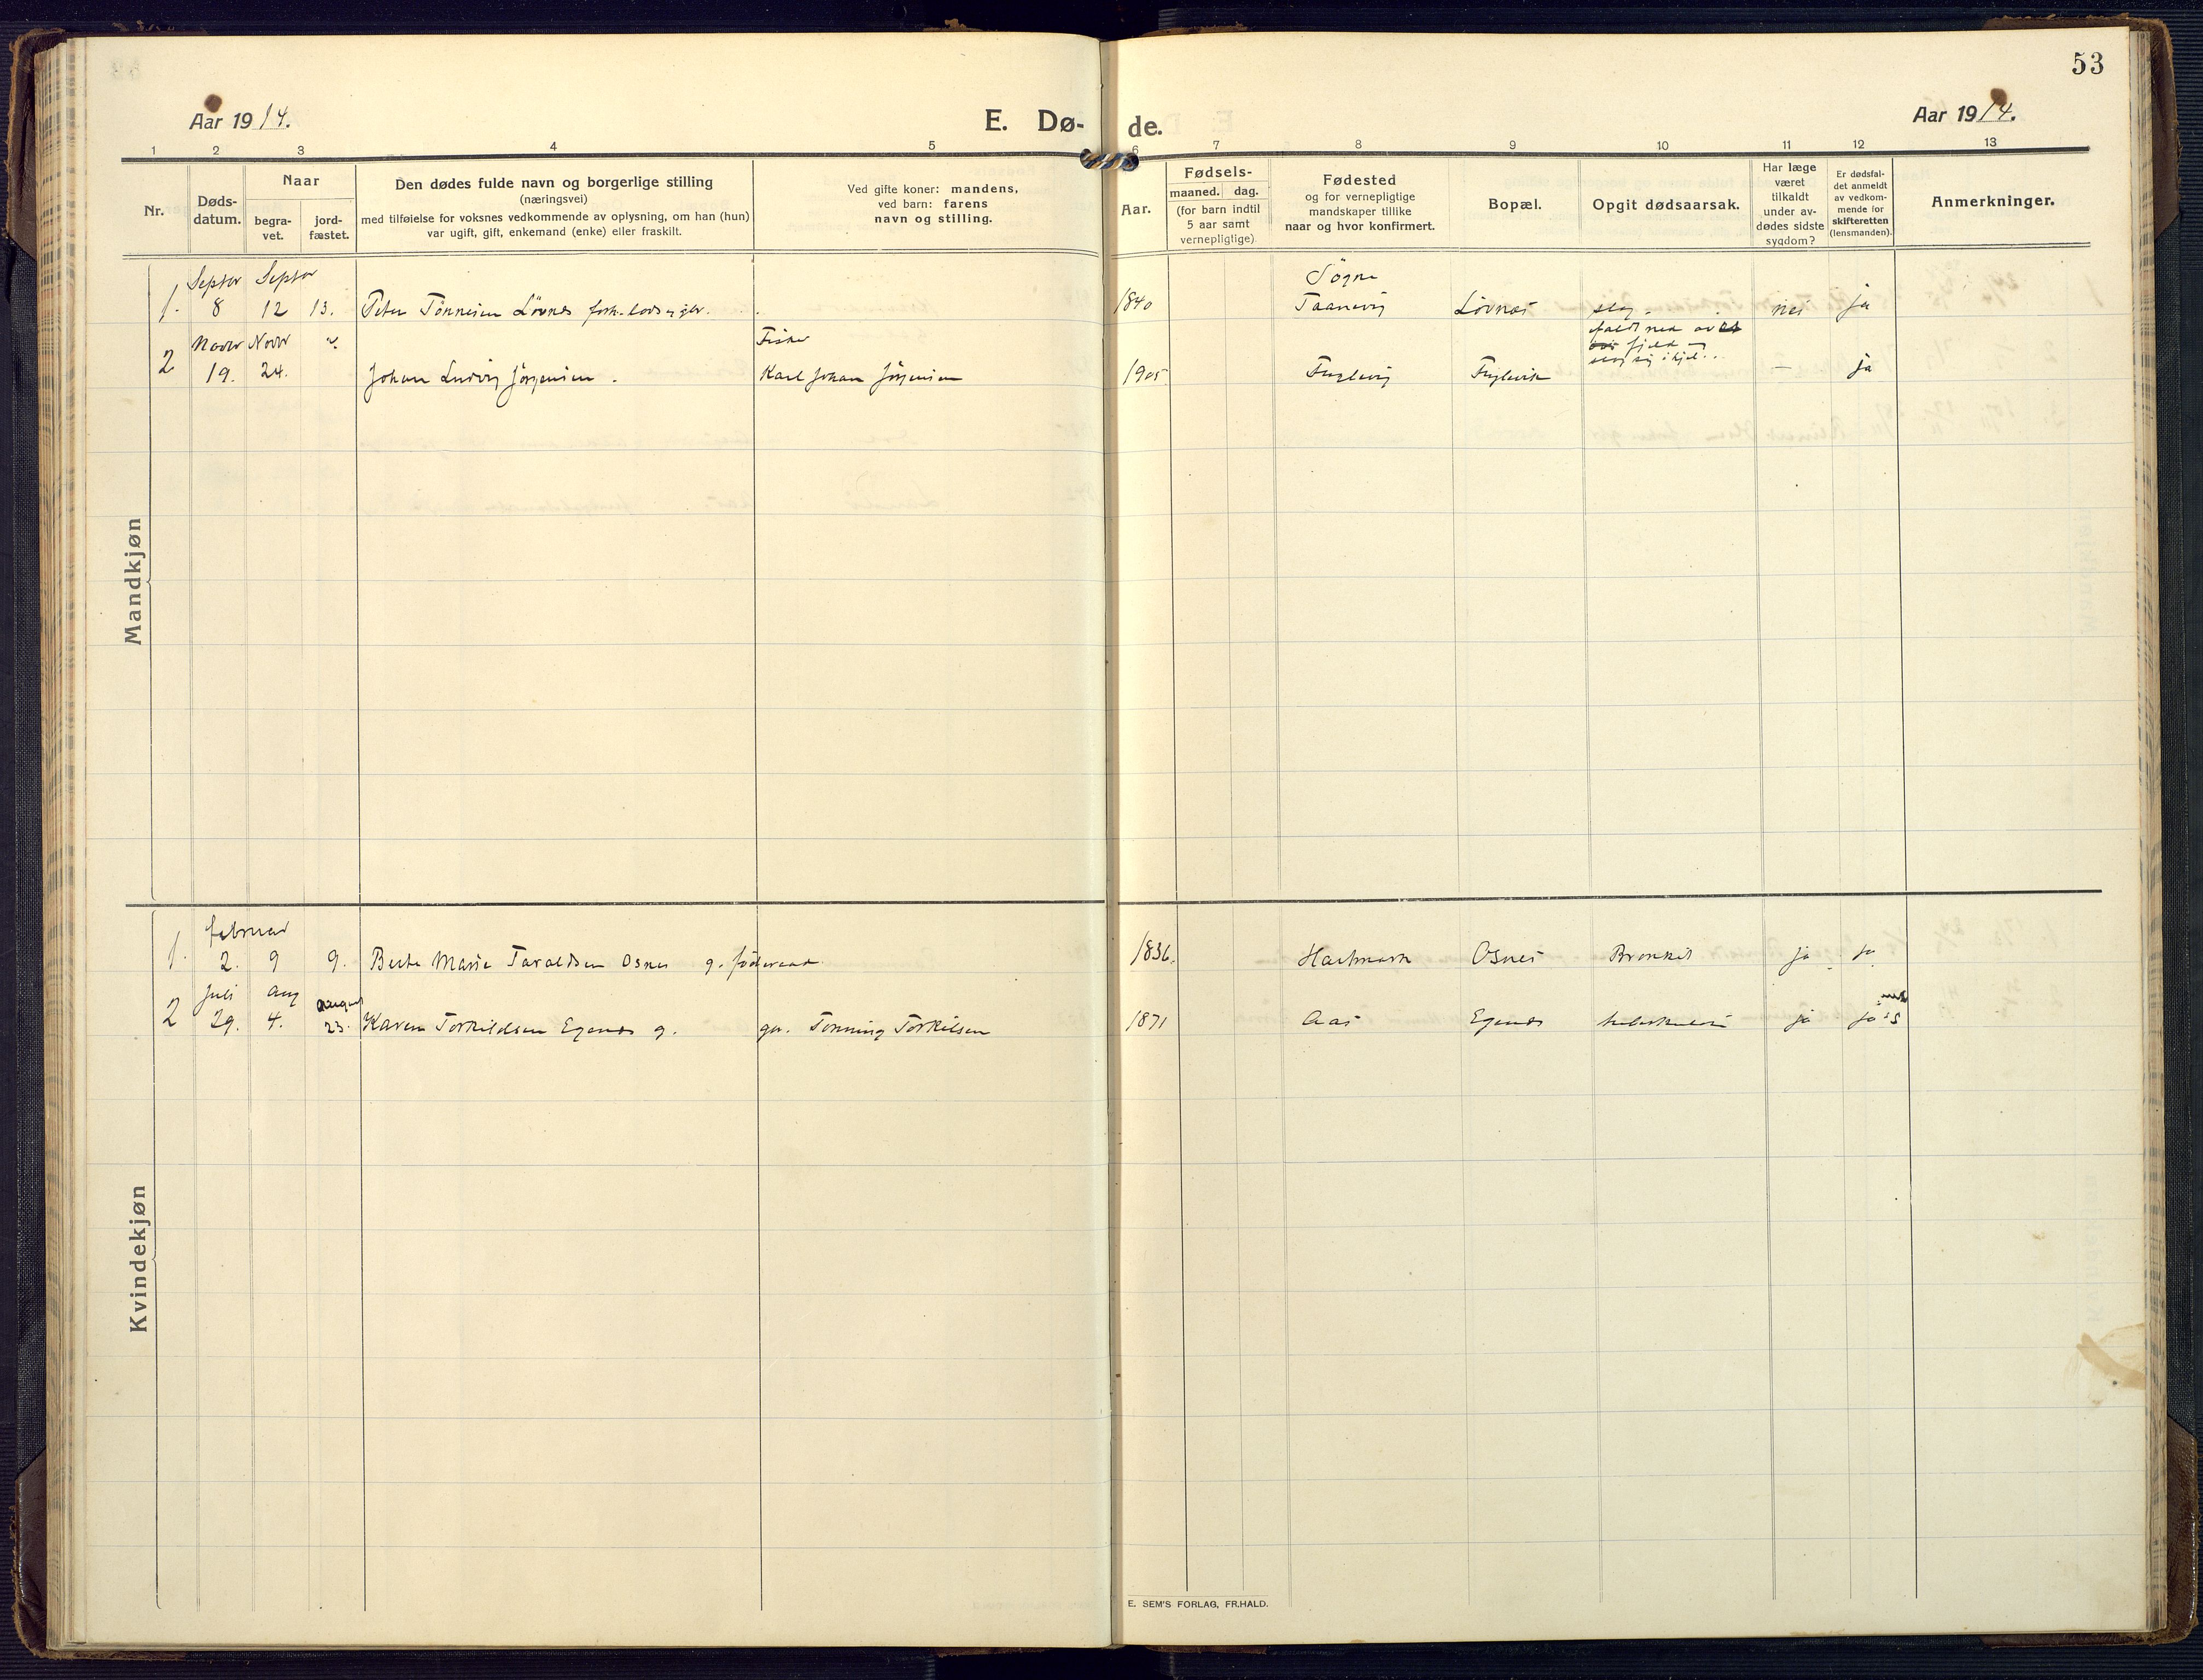 53
Aar 1914.
E. Dø- de.
Aar 1914.
1 2 3 4 5 6 7 8 9 10 11 12 13
Nr.
Døds-
datum.
Naar
begra-
vet.
jord-
fæstet.
Den dødes fulde navn og borgerlige stilling
(næringsvei)
med tilføielse for voksnes vedkommende av oplysning, om han (hun)
var ugift, gift, enkemand (enke) eller fraskilt.
Ved gifte koner: mandens,
ved barn: farens
navn og stilling.
Aar.
Fødsels-
maaned. dag.
(for barn indtil
5 aar samt
vernepligtige)
Fødested
og for vernepligtige
mandskaper tillike
naar og hvor konfirmert.
Bopæl.
Opgit dødsaarsak.
Har læge
været
tilkaldt
under av-
dødes sidste
sygdom?
Er dødsfal-
det anmeldt
av vedkom-
mende for
skifteretten
(lensmanden).
Anmerkninger.
Mandkjøn
Septbr Septbr Søgne
1. 8 12 13. Peter Tönnesen Lövnes 1840 Taanevig Lövnes slag. nei ja
Novbr Novbr Fisker faldt ned av et
fjeld og
slog sig ihjel.
2 19. 24. Johan Ludvig Jörgensen. Karl Johan Jörgensen 1905 Fuglevig Fuglevik — ja
Kvindekjøn
februar
1. 2. 9 9. Berte Marie Taraldsen Osnes g. föderaad. 1836. Hartmark Osnes Bronkit ja ja
Juli Aug August
2 29. 4. 23. Karen Torkildsen Egenes g. gm. Tönning Torkilsen 1871 Aas Egenes tuberkulose ja ja
E. SEM'S FORLAG, FR.HALD.